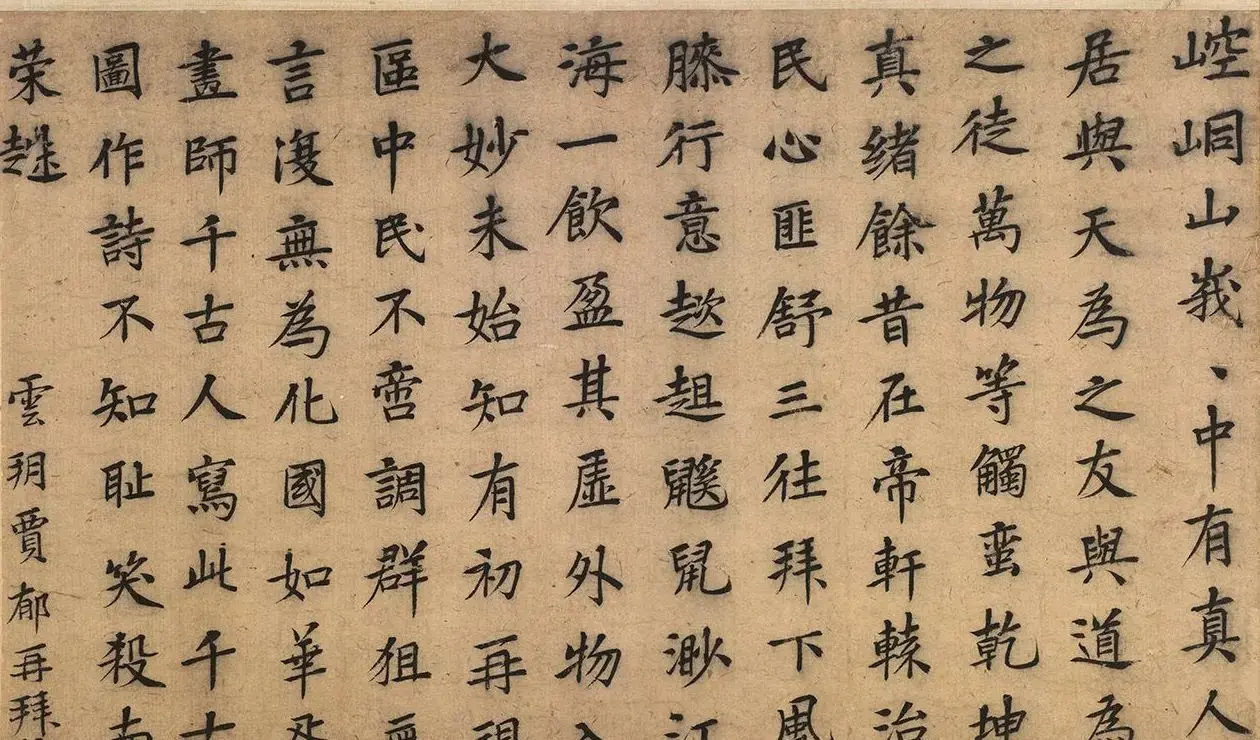 崆峒山峩、中有真人
居與天為之友與道為
之徒萬物等觸蛮乾坤
真緒餘昔在帝軒轅治
民心匪舒三往拜下風
膝行意趑趄鼷鼠渺江
海一飲盈其虛外物
大妙未始知有初再
區中民不啻調群狙
言復無為化國如華
畫師千古人寫此千古
圖作詩不知耻笑殺南
荣趎 雲玥賈郁再拜